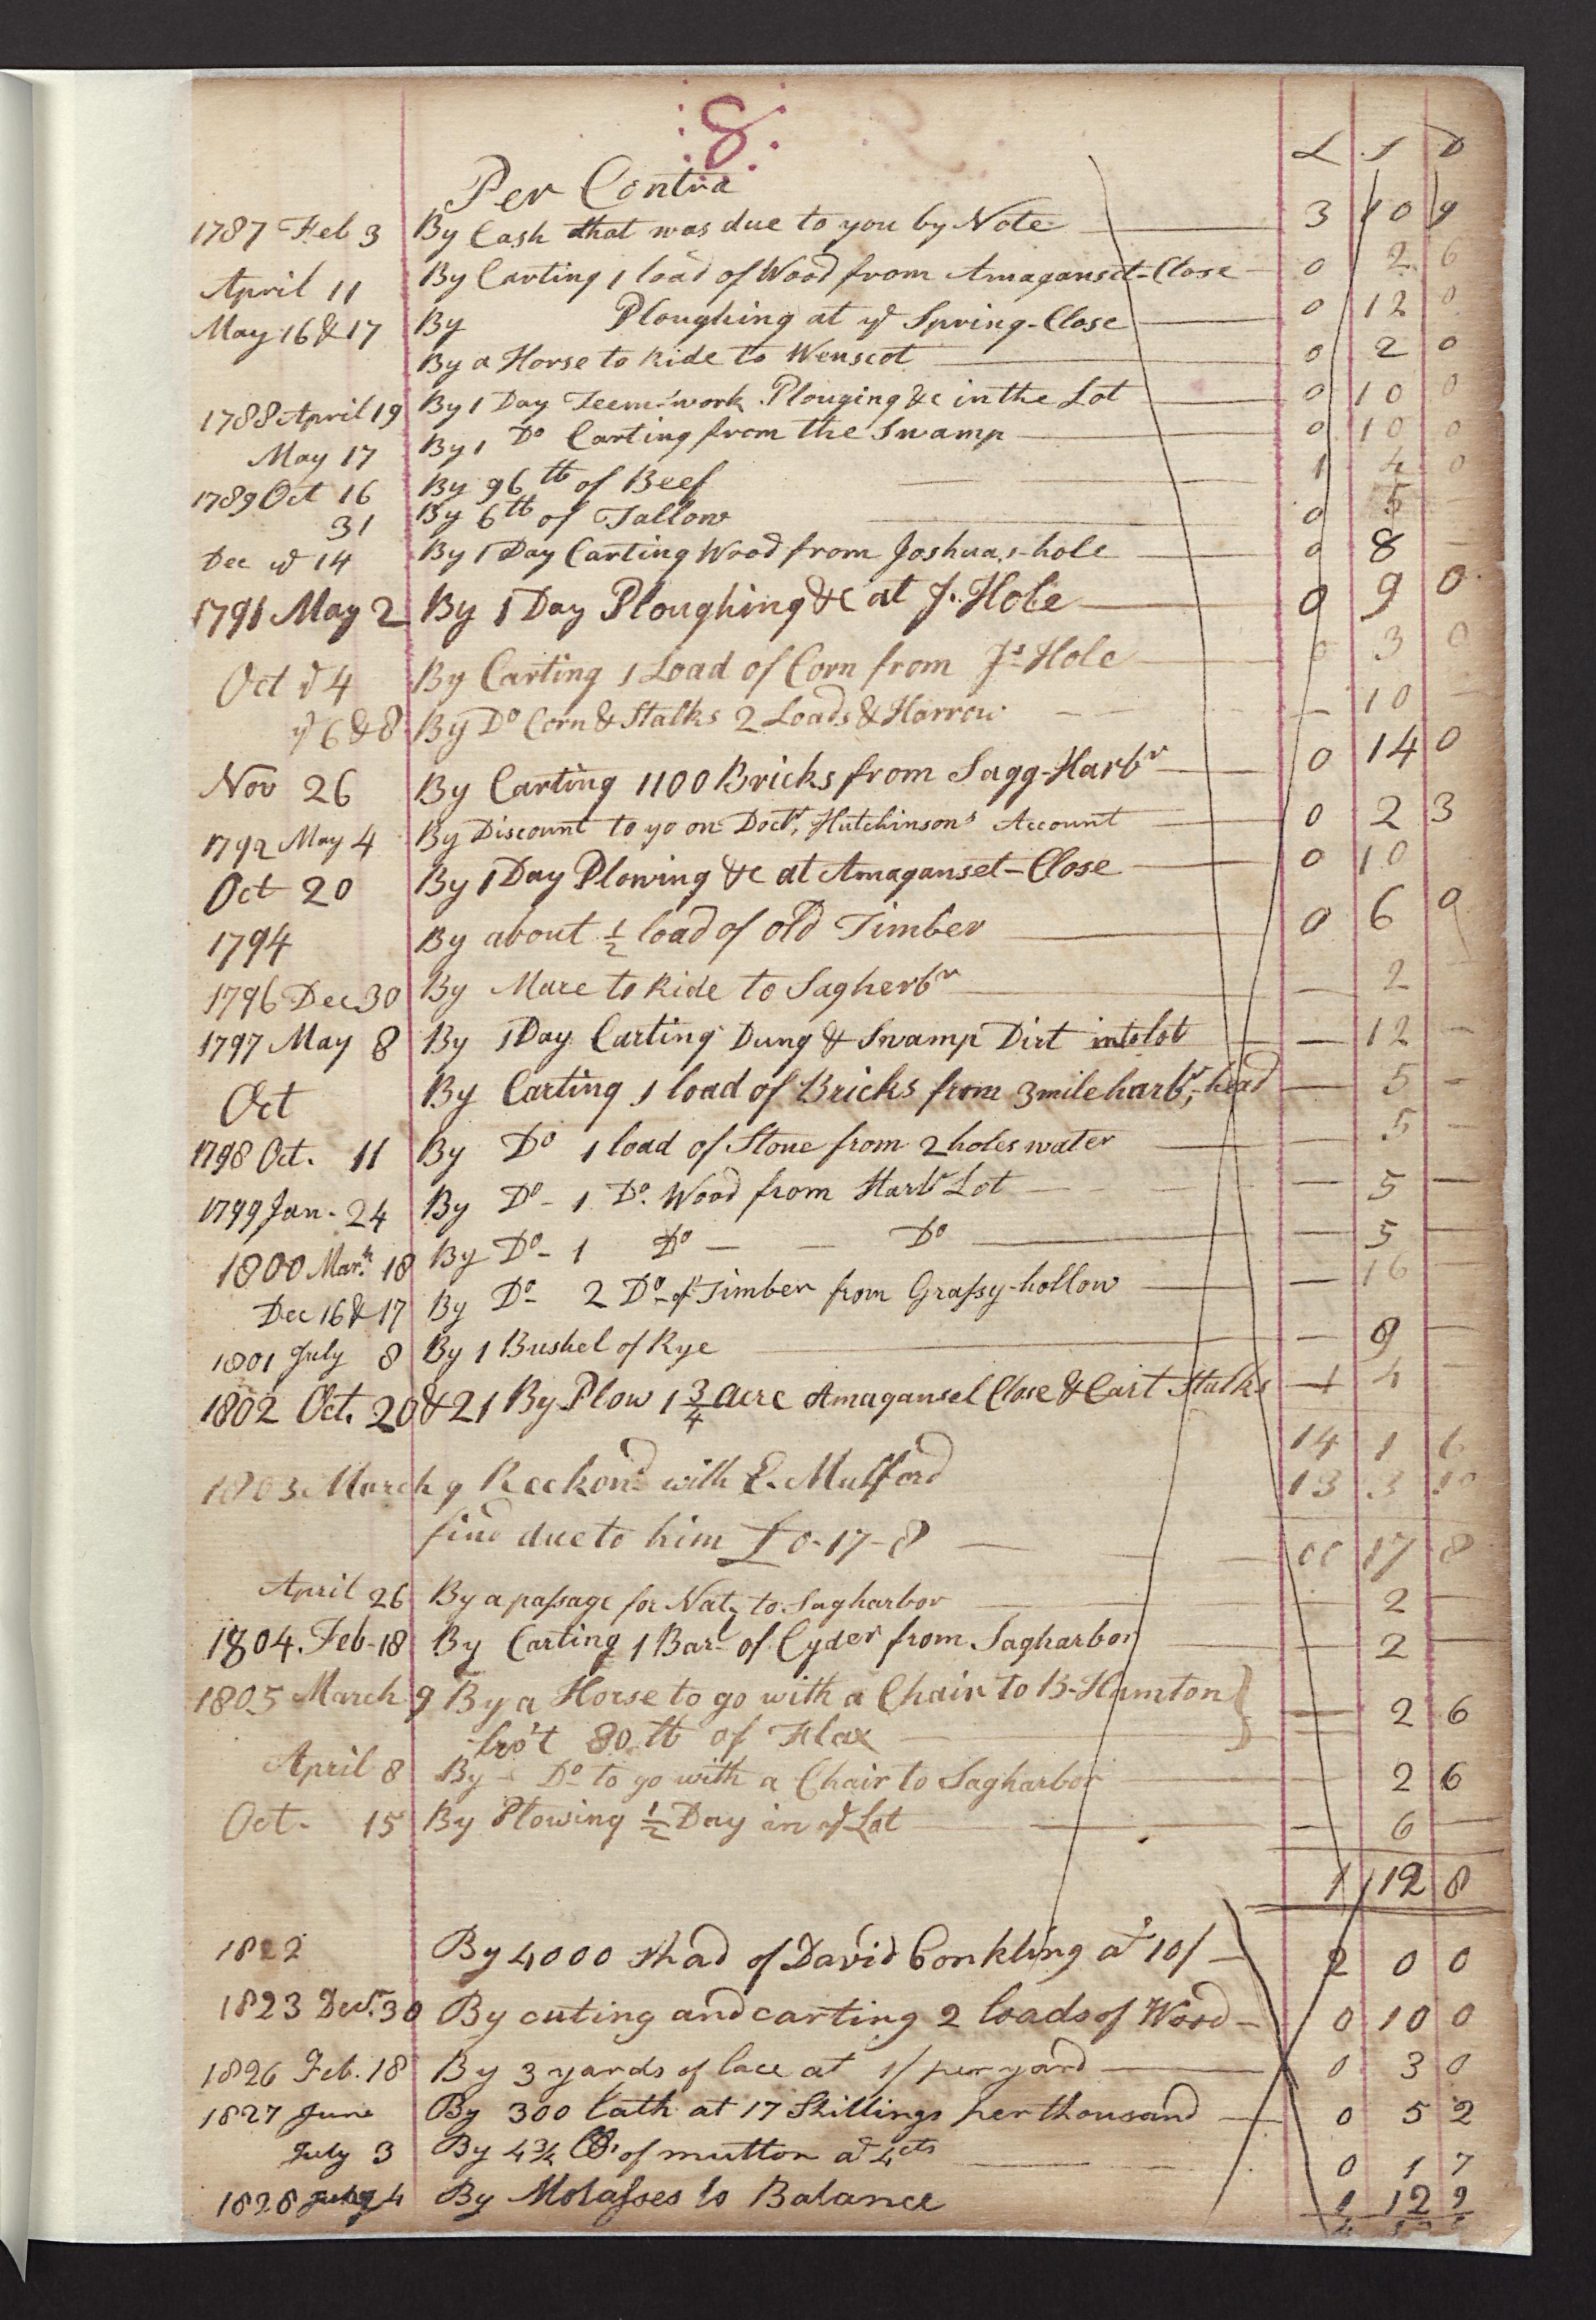 :8:
L S D
Per Contra
1787 Feb 3 By Cash that was due to you by Note 3 10 9
April 11 By Carting 1 load of Wood from Amaganset-Close 0 2 6
May 16 & 17 By Ploughing at ye Spring-Close 0 12 0
By a Horse to Ride to Wenscot 0 2 0
1788 April 19 By 1 Day Teem-work Plouging &c in the Lot 0 10 0
May 17 By 1 Do Carting from the Swamp 0 10 0
1789 Oct 16 By 96 lb of Beef 1 4 0
31 By 6 lb of Tallow 0 5 —
Dec ye 14 By 1 Day Carting Wood from Joshua,s-hole 0 8 —
1791 May 2 By 1 Day Ploughing &c at J. Hole 0 9 0
Oct ye 4 By Carting 1 Load of Corn from Js Hole 0 3 0
ye 6 & 8 By Do Corn & Stalks 2 Loads & Harrow — 10 —
Nov 26 By Carting 1100 Bricks from Sagg-Harbr 0 14 0
1792 May 4 By Discount to yo on Doctr, Hutchinsons Account 0 2 3
Oct 20 By 1 Day Plowing &c at Amaganset-Close 0 10
1794 By about 1/2 load of old Timber 0 6 0
1796 Dec 30 By Mare to Ride to Sagherbr — 2 —
1797 May 8 By 1 Day Carting Dung & Swamp Dirt into lot — 12 —
Oct By Carting 1 load of Bricks from 3 mile harbr,-head — 5 —
1798 Oct. 11 By Do 1 load of Stone from 2 holes water — 5 —
1799 Jan. 24 By Do- 1 Do. Wood from Harbr Lot — 5 —
1800 Marh 18 By Do- 1 Do — — Do — 5 —
Dec 16 & 17 By Do- 2 Do- of Timber from Grassy-hollow — 16 —
1801 July 8 By 1 Bushel of Rye — 9 —
1802 Oct. 20 & 21 By Plow 1 3/4 acre Amaganset Close & Cart Stalks 1 4 —
14 1 6
1803 March 9 Reckond with E. Mulford 13 3 10
find due to him £0-17-8 00 17 8
April 26 By a passage for Nat, to Sagharbor — 2 —
1804. Feb-18 By Carting 1 Barl of Cyder from Sagharbor — 2 —
1805 March 9 By a Horse to go with a Chair to B-Hamton } — 2 6
bro't 80 lb of Flax
April 8 By - Do- to go with a Chair to Sagharbor — 2 6
Oct. 15 By Plowing 1/2 Day in ye Lot — 6 —
1 12 8
1822 By 4000 shad of David Conkling at 10/ 2 0 0
1823 Decr. 30 By cuting and carting 2 loads of Wood 0 10 0
1826 Feb. 18 By 3 yards of lace at 1/ per yard 0 3 0
1827 June By 300 lath at 17 Shillings per thousand 0 5 2
July 3 By 4 3/4 lb. of mutton at 4cts 0 1 7
1828 July 4 By Molasses to Balance 1 12 9